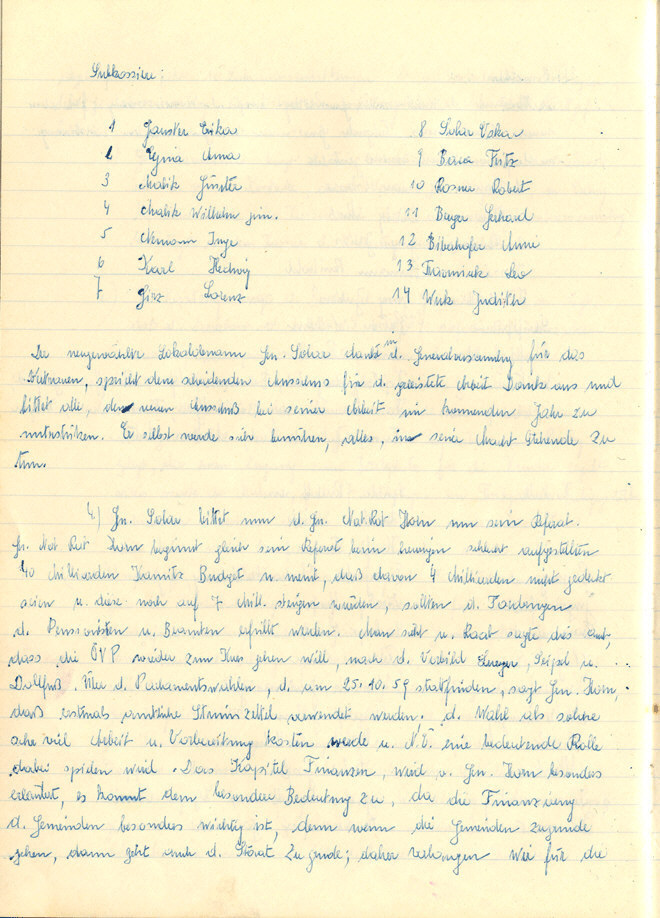 Subkassiere:
1 Janster Erika
8 Solar Oskar
2 Anna
9 Fritz
3 Malik Günter
10 Rosner Robert
4 Malik Wilhelm jun.
11 Berger Gerhard
5 Inge
12 Biberhofer Anni
6 Karl Hedwig
13 Leo
7 Lorenz
14 Wuk Judith
Der neugewählte Lokalobmann Gn. Solar dankt in d. Generalversammlung für das
Vertrauen, spricht dem scheidenden Ausschuss für d. geleistete Arbeit Dank aus und
bittet alle, den neuen Ausschuß bei seiner Arbeit im kommenden Jahr zu
unterstützen. Er selbst werde sich bemühen, alles, in seiner Macht Stehende zu
tun.
4.) Gn. Solar bittet nun d. Gn. Nat. Rat Horn um sein Referat.
Gn. Nat Rat Horn beginnt gleich sein Referat beim heurigen schlecht aufgestellten
40 Milliarden Kamitz Budget u. meint, daß davon 4 Milliarden nicht gedeckt
seien u. diese noch auf 7 Mill. steigen würden, sollten d. Forderungen
d. Pensionisten u. Beamten erfüllt werden. Man sieht u. Raab sagte dies
dass die ÖVP wieder zum Kurs gehen will, nach d. Vorbild Seipel u.
Dollfuß. Über d. Parlamentswahlen, d. am 25.10.59 stattfinden, sagt Gn. Horn,
daß erstmals amtliche Stimmzettel verwendet werden. d. Wahl als solche
sehr viel Arbeit u. Vorbereitung kosten werde u. N.Ö. eine bedeutende Rolle
dabei spielen wird. Das Kapitel Finanzen, wird v. Gn. Horn besonders
erläutert, es kommt dem besondere Bedeutung zu, da die Finanzierung
d. Gemeinden besonders wichtig ist, denn wenn die Gemeinden zugrunde
gehen, dann geht auch d. Staat zu grunde; daher verlangen wir für die